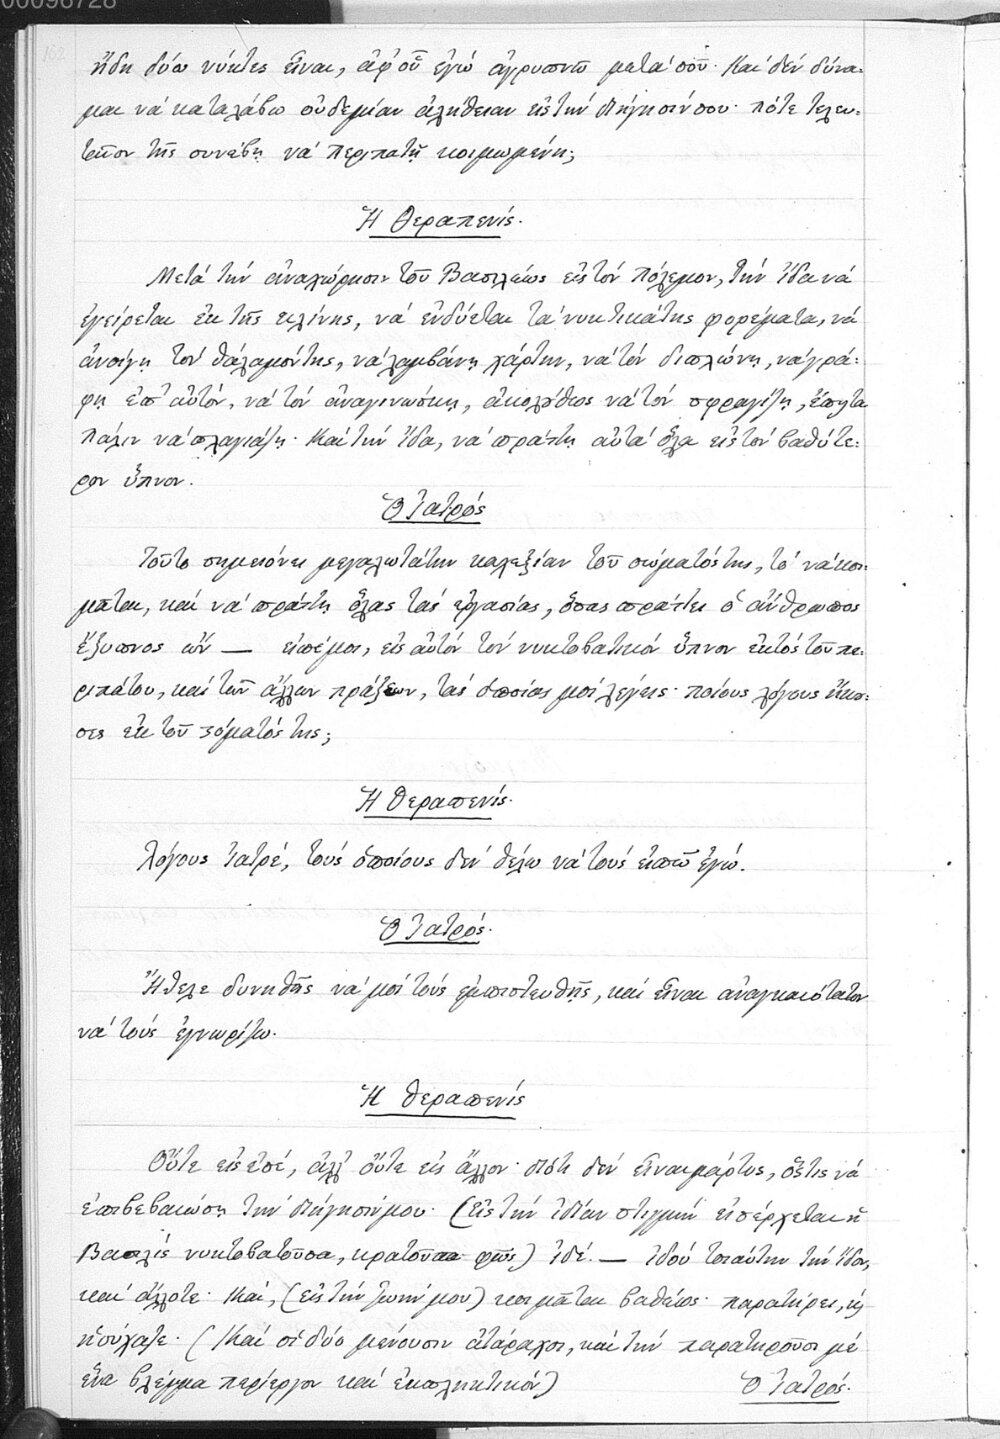 00096728
162
ἤδη δύω νύκτες εἶναι, ἀφ' οὗ ἐγώ ἀγρυπνῶ μετά σοῦ· καί δέν δύνα-
μαι νά καταλάβω οὐδεμίαν ἀλήθειαν εἰς τήν διήγησίν σου· πότε τελευ-
ταῖον τῆς συνέβη νά περιπατῇ κοιμωμένη;
Ἡ Θεραπενίς.
Μετά τήν ἀναχώρησιν τοῦ Βασιλέως εἰς τόν πόλεμον, τήν ἴδα νά
ἐγείρεται ἐκ τῆς κλίνης, νά ἐνδύεται τά νυκτικά της φορέματα, νά
ἀνοίγῃ τόν θάλαμόν της, νά λαμβάνῃ χάρτην, νά τόν διπλώνῃ, νά γρά-
φῃ ἐπ' αὐτόν, νά τόν ἀναγινώσκῃ, ἀκολούθως νά τόν σφραγίζῃ, ἔπειτα
πάλιν νά πλαγιάζῃ· καί τήν ἴδα, νά πράττῃ αὐτά ὅλα εἰς τόν βαθύτε-
ρον ὕπνον.
Ὁ Ἰατρός
Τοῦτο σημειόνει μεγαλωτάτην καχεξίαν τοῦ σώματός της, τό νά κοι-
μᾶται, καί νά πράττῃ ὅλας τάς ἐργασίας, ὅσας πράττει ὁ ἄνθρωπος
ἔξυπνος ὤν — εἰπέ μοι, εἰς αὐτόν τόν νυκτοβατικόν ὕπνον ἐκτός τοῦ πε-
ριπάτου, καί τῶν ἄλλων πράξεων, τάς ὁποίας μοί λέγεις· ποίους λόγους ἤκου-
σες ἐκ τοῦ στόματός της;
Ἡ θεραπενίς.
Λόγους Ἰατρέ, τούς ὁποίους δέν θέλω νά τούς εἰπῶ ἐγώ.
Ὁ Ἰατρός.
Ἤθελε δυνηθῆς νά μοί τούς ἐμπιστευθῇς, καί εἶναι ἀναγκαιότατον
νά τούς ἐγνωρίζω.
Ἡ θεραπενίς
Οὔτε εἰς ἐσέ, ἀλλ' οὔτε εἰς ἄλλον· διότι δέν εἶναι μάρτυς, ὅςτις νά
ἐπιβεβαιώσῃ τήν διήγησίν μου· (εἰς τήν ἰδίαν στιγμήν εἰσέρχεται ἡ
Βασιλίς νυκτοβατοῦσα, κρατοῦσα φῶς) ἰδέ. — ἰδού τοιαύτην τήν ἴδα,
καί ἄλλοτε· καί, (εἰς τήν ζωήν μου) κοιμᾶται βαθέως· παρατήρει, κ̀
ἡσύχαζε. (καί οἱ δύο μένουσιν ἀτάραχοι, καί τήν παρατηροῦσι μέ
ἕνα βλέμμα περίεργον καί ἐκπληκτικόν)
Ὁ Ἰατρός.